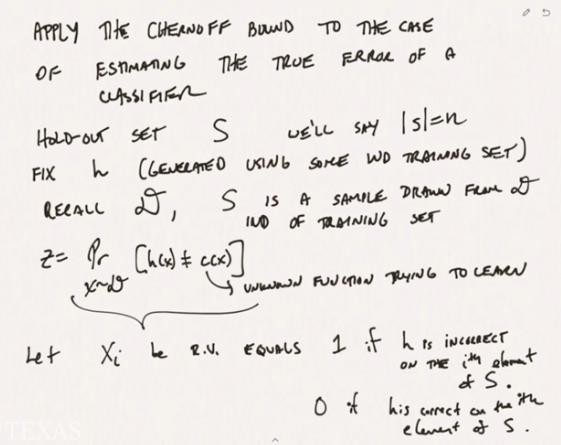 APPLY THE CHERNOFF BOUND TO THE CASE
OF ESTIMATING THE TRUE ERROR OF A
CLASSIFIER
HOLD-OUT SET S WE'LL SAY |S|=n
FIX h (GENERATED USING SOME IND TRAINING SET)
RECALL 𝒟, S IS A SAMPLE DRAWN FROM 𝒟
IND OF TRAINING SET
z = Pr [h(x) ≠ c(x)]
x~𝒟
UNKNOWN FUNCTION TRYING TO LEARN
Let Xi be R.V. EQUALS 1 if h IS INCORRECT
ON THE ith element
of S.
0 if h is correct on the ith
element of S.
TEXAS